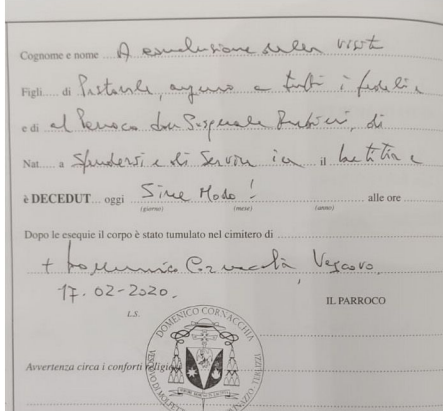 Cognome e nome A conclusione della visita
Figli.... di Pastorale, auguro a tutti i fedeli e
e di al Parroco don Pasquale Rubini, di
Nat.... a Spendersi e di Servire in il laetitia e
è DECEDUT.... oggi Sine Modo! alle ore
(giorno) (mese) (anno)
Dopo le esequie il corpo è stato tumulato nel cimitero di
+ Domenico Cornacchia, Vescovo
17.02-2020.
IL PARROCO
L.S.
DOMENICO CORNACCHIA
Avvertenza circa i conforti religiosi
VESCOVO DI MOLFETTA